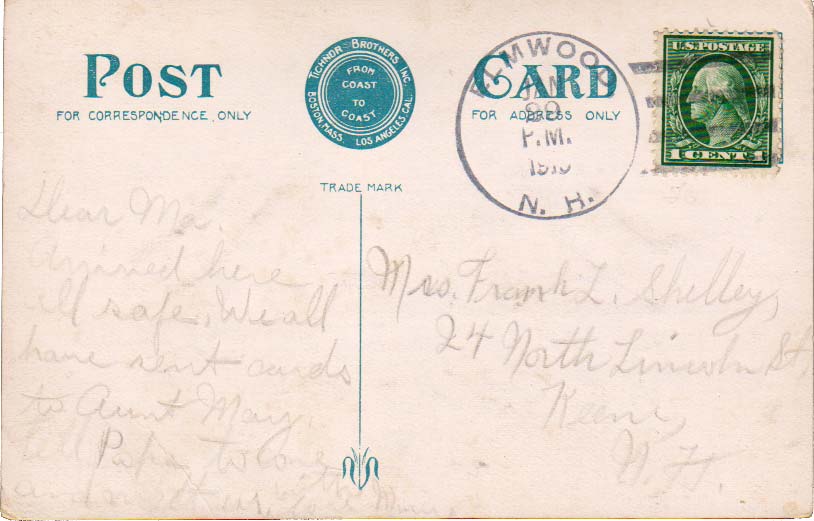 POST CARD
FOR CORRESPONDENCE ONLY
FOR ADDRESS ONLY
TICHNOR BROTHERS INC.
BOSTON, MASS. LOS ANGELES CAL.
FROM
COAST
TO
COAST
TRADE MARK
ELMWOOD
P.M.
N. H.
U.S. POSTAGE
1 CENT 1
Dear Ma.
Arrived here
all safe. We all
have sent cards
to Aunt May.
tell Papa to come
and meet us,
Mrs. Frank L. Shelley,
24 North Lincoln St,
Keene,
N. H.